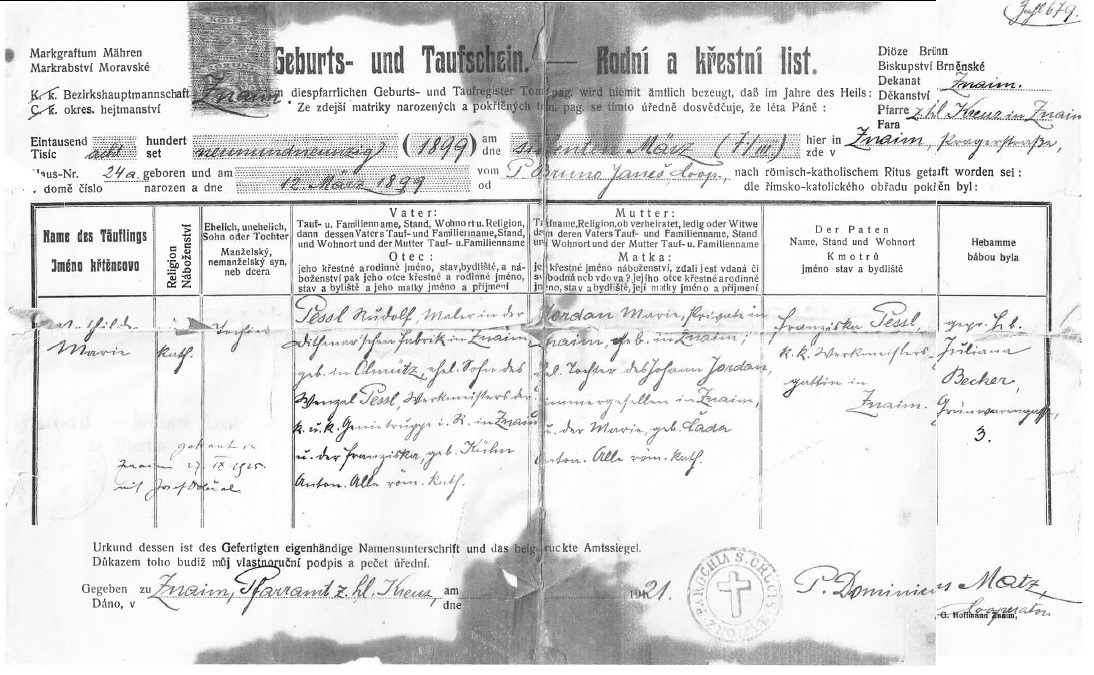 Zahl 679.
Markgraftum Mähren
Markrabství Moravské
K. k. Bezirkshauptmannschaft Znaim.
C. k. okres. hejtmanství
Geburts- und Taufschein. — Rodní a křestní list.
Diöze Brünn
Biskupství Brněnské
Dekanat Znaim.
Děkanství
Pfarre z. hl. Kreuz in Znaim
Fara
diespfarrlichen Geburts- und Taufregister Tom. pag. wird hiemit ämtlich bezeugt, daß im Jahre des Heils:
Ze zdejší matriky narozených a pokřtěných tom. pag. se tímto úředně dosvědčuje, že léta Páně :
Eintausend acht hundert neunundneunzig (1899) am siebenten März (7/III.) hier in Znaim, Pragerstraße,
Tisíc set dne zde v
Haus-Nr. 24a. geboren und am 12. März 1899 vom P. Bruno Janeš, Coop., nach römisch-katholischem Ritus getauft worden sei :
domě číslo narozen a dne od dle římsko-katolického obřadu pokřěn byl :
Name des Täuflings
Jméno křtěncovo
Religion
Náboženství
Ehelich, unehelich,
Sohn oder Tochter
Manželský,
nemanželský syn,
neb dcera
Vater:
Tauf- u. Familienname, Stand, Wohnort u. Religion,
dann dessen Vaters Tauf- und Familienname, Stand,
und Wohnort und der Mutter Tauf- u. Familienname
Otec:
jeho křestné a rodinné jméno, stav, bydliště, a ná-
boženství pak jeho otce křestné a rodinné jméno,
stav a byliště a jeho matky jméno a příjmení
Mutter:
Taufname, Religion, ob verheiratet, ledig oder Witwe
dann deren Vaters Tauf- und Familienname, Stand
und Wohnort und der Mutter Tauf- und Familienname
Matka:
její křestné jméno náboženství, zdali jest vdaná či
svobodná neb vdova? Jejího otce křestné a rodinné
jméno, stav a bydliště, její matky jméno a příjmení
Der Paten
Name, Stand und Wohnort
Kmotrů
jméno stav a bydliště
Hebamme
bábou byla
Mathilde
Marie
kath.
Tochter
Pessl Rudolf, Maler in der
Dithmar'schen Fabrik in Znaim,
geb. in Olmütz, ehel. Sohn des
Wenzel Pessl, Werkmeisters der
k. u. k. Genietruppe i. R. in Znaim
u. der Franziska, geb. Kühn
Anton. Alle röm. kath.
Jordan Marie, Private in
Znaim, geb. in Znaim,
ehel. Tochter des Johann Jordan,
Zimmergesellen in Znaim,
u. der Marie, geb. Čada
Anton. Alle röm. kath.
Franziska Pessl,
k. k. Werkmeisters-
gattin in
Znaim.
gepr. Hb.
Juliana
Becher,
3.
getraut in
Znaim 27. IX 1925.
mit Josef
Urkund dessen ist des Gefertigten eigenhändige Namensunterschrift und das beigedruckte Amtssiegel.
Důkazem toho budiž můj vlastnoruční podpis a pečet úřední.
Gegeben zu Znaim, Pfarramt z. hl. Kreuz, am 1921.
Dáno, v dne
PAROCHIA S. CRUCIS
P. Dominicus Matz,
Cooperator
G. Hoffmann Znaim,